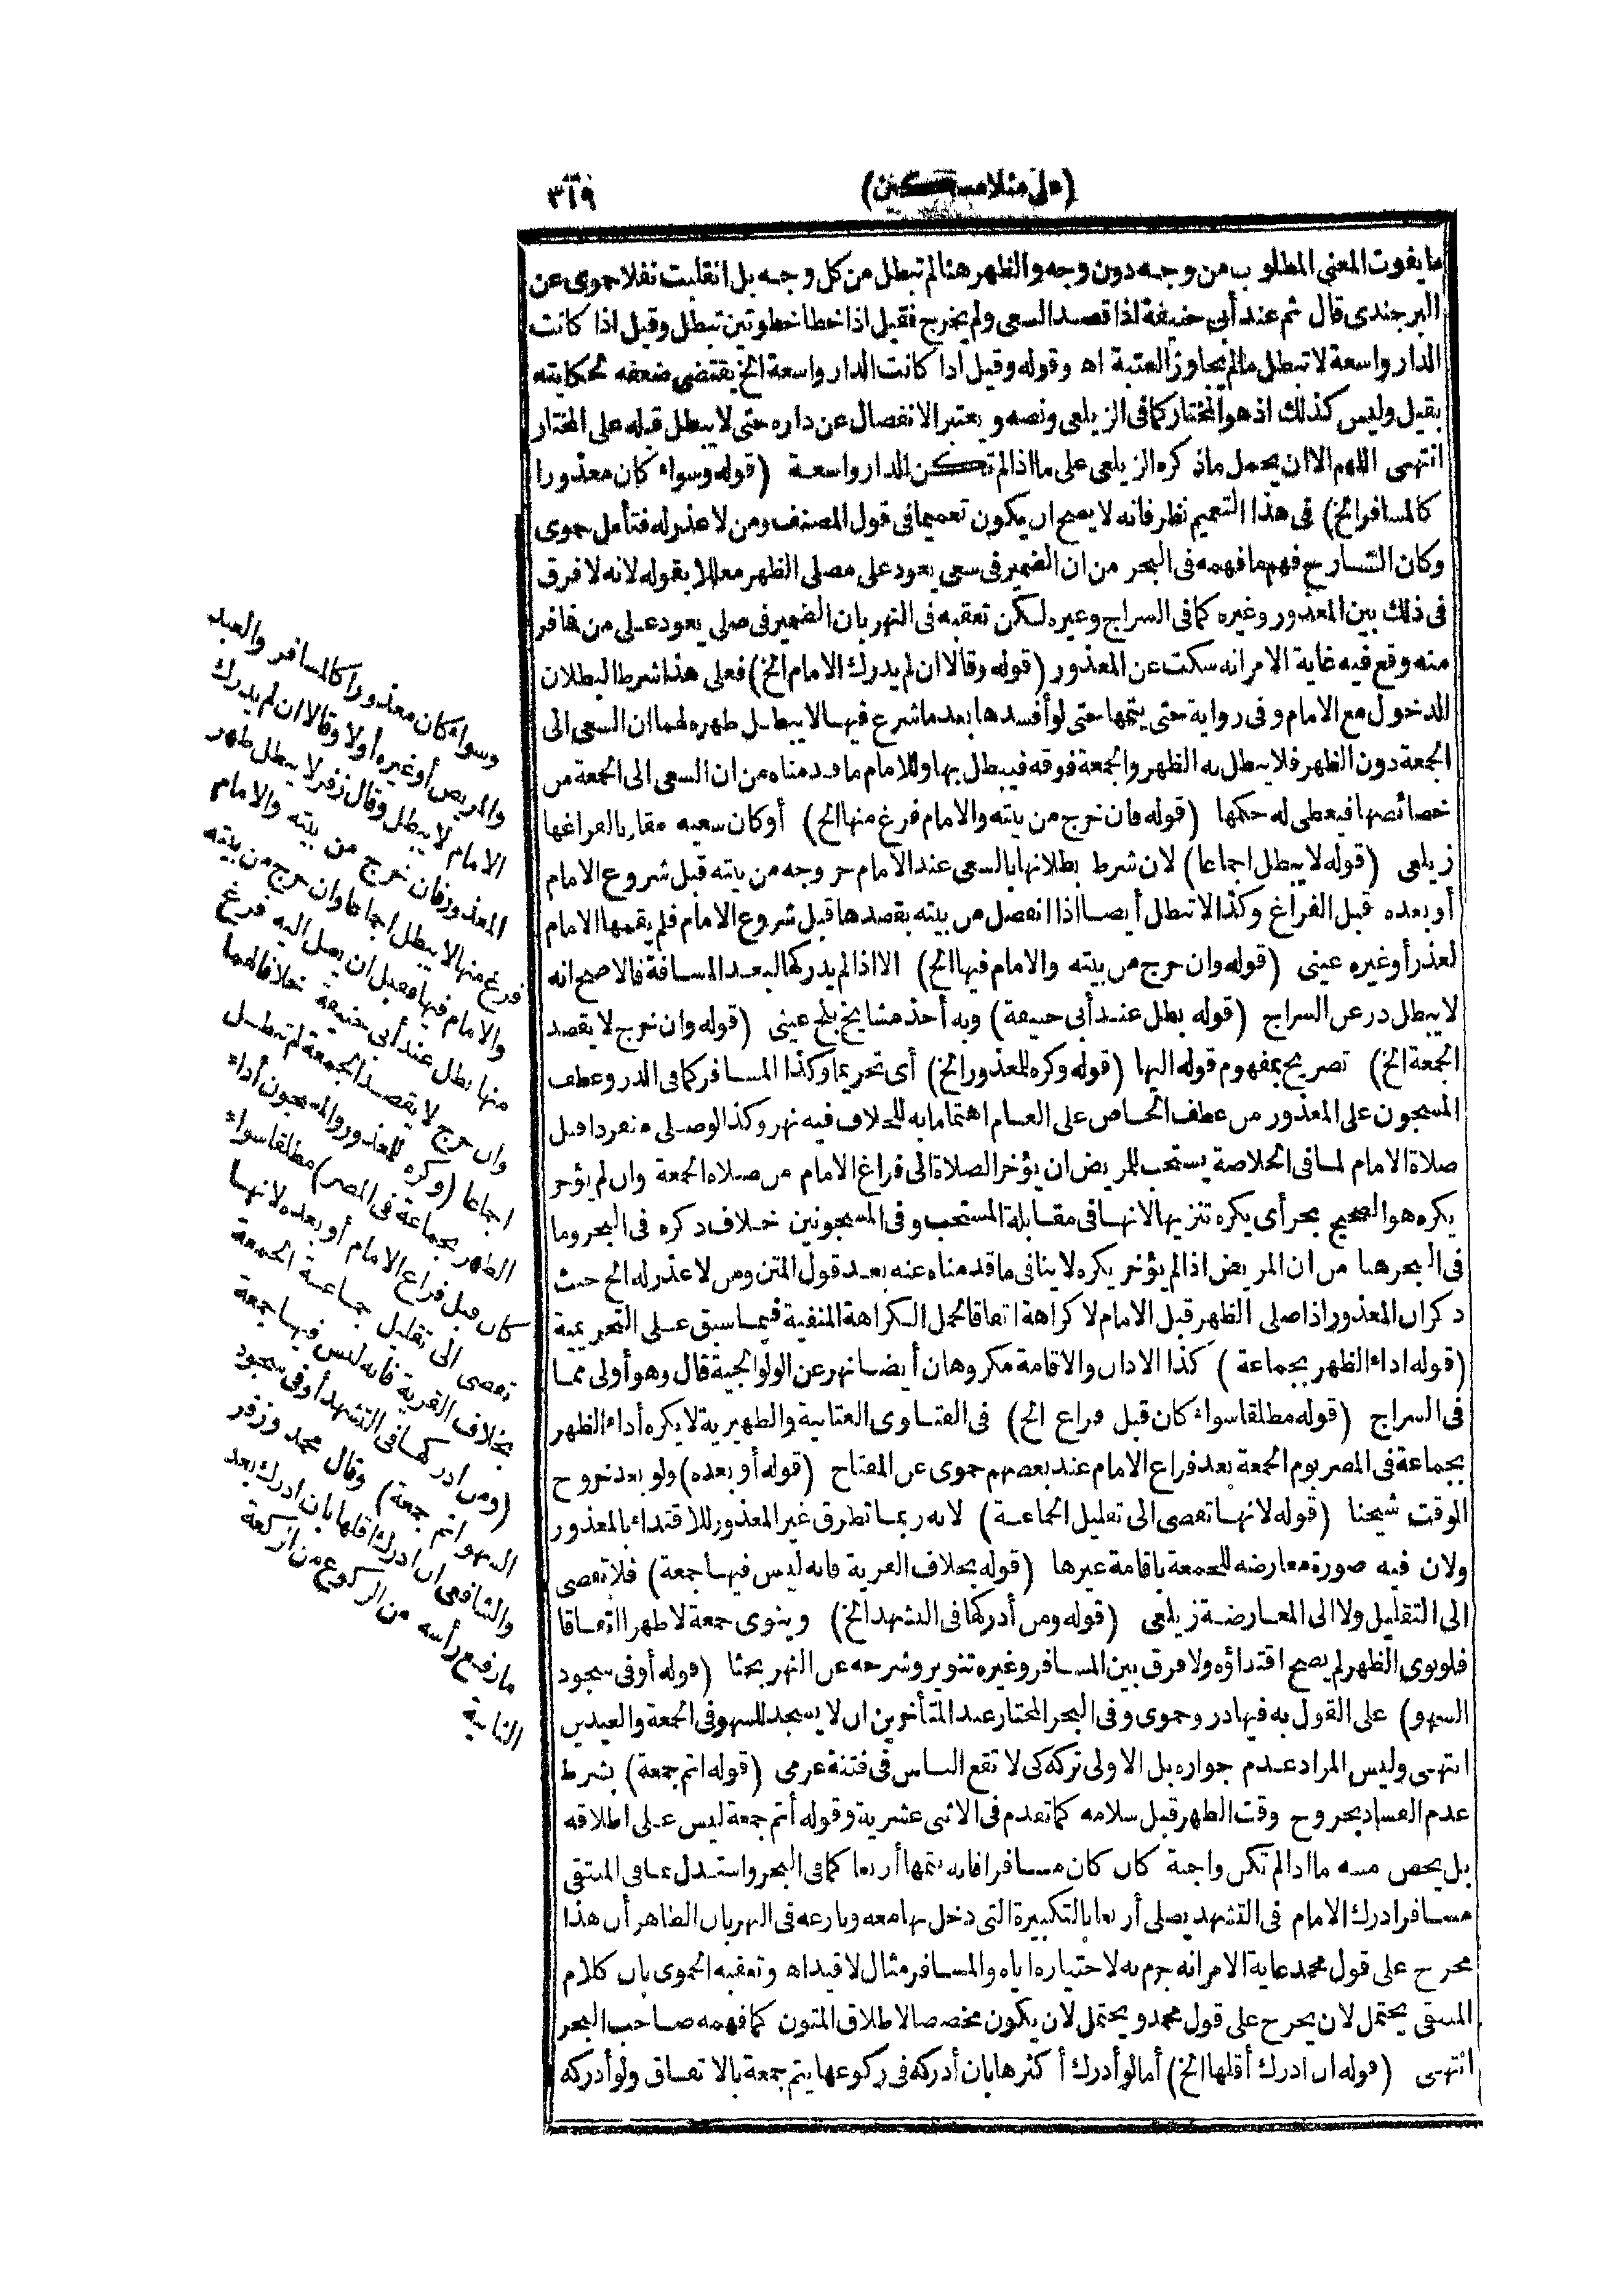 (على منلا مسكين)
٣١٩
ما يفوت المعنى المطلوب من وجه دون وجه والظهر هنا لم تبطل من كل وجه بل انقلبت نفلا حموى عن
البرجندى قال ثم عند أبى حنيفة اذا قصد السعى ولم يخرج فقيل اذا خطا خطوتين تبطل وقيل اذا كانت
الدار واسعة لا تبطل مالم يجاوز العتبة اه وقوله وقيل اذا كانت الدار واسعة الخ يقتضى ضعفه لحكايته
بقيل وليس كذلك اذ هو المختار كما فى الزيلعى ونصه ويعتبر الانفصال عن داره حتى لا يبطل قبله على المختار
انتهى اللهم الا ان يحمل ماذكره الزيلعى على ما اذا لم تكن الدار واسعة (قوله وسواء كان معذورا
كالمسافر الخ) فى هذا التعميم نظر فانه لا يصح ان يكون تعميما فى قول المصنف ومن لا عذر له فتأمل حموى
وكان الشارح فهم ما فهمه فى البحر من ان الضمير فى سعى يعود على مصلى الظهر معللا بقوله لانه لا فرق
فى ذلك بين المعذور وغيره كما فى السراج وغيره لكن تعقبه فى النهر بان الضمير فى صلى يعود على من فافر
منه وقع فيه غاية الامر انه سكت عن المعذور (قوله وقالا ان لم يدرك الامام الخ) فعلى هذا شرط البطلان
الدخول مع الامام وفى رواية حتى يتمها حتى لو أفسدها بعد ما شرع فيها لا يبطل ظهره لهما ان السعى الى
الجمعة دون الظهر فلا يبطل به الظهر والجمعة فوقه فيبطل بها وللامام ما قدمناه من ان السعى الى الجمعة من
خصائصها فيعطى له حكمها (قوله فان خرج من بيته والامام فرغ منها الخ) أو كان سعيه مقارنا لفراغها
زيلعى (قوله لا يبطل اجماعا) لان شرط بطلانها بالسعى عند الامام خروجه من بيته قبل شروع الامام
أو بعده قبل الفراغ وكذا لا تبطل أيضا اذا انفصل من بيته بقصدها قبل شروع الامام فلم يقمها الامام
لعذر أو غيره عينى (قوله وان خرج من بيته والامام فيها الخ) الا اذا لم يدركها لبعد المسافة فالاصح انه
لا يبطل در عن السراج (قوله بطل عند أبى حنيفة) وبه أخذ مشايخ بلخ عينى (قوله وان خرج لا يقصد
الجمعة الخ) تصريح بمفهوم قوله اليها (قوله وكره للمعذور الخ) أى تحريما وكذا المسافر كما فى الدر وعطف
المسجون على المعذور من عطف الخاص على العام اهتماما به للخلاف فيه نهر وكذا لو صلى منفردا قبل
صلاة الامام لما فى الخلاصة يستحب للمريض ان يؤخر الصلاة الى فراغ الامام من صلاة الجمعة وان لم يؤخر
يكره هو الصحيح بحر أى يكره تنزيها لانها فى مقابلة المستحب وفى المسجونين خلاف ذكره فى البحر وما
فى البحر هنا من ان المريض اذا لم يؤخر يكره لا ينافى ما قدمناه عنه بعد قول المتن ومن لا عذر له الخ حيث
ذكر ان المعذور اذا صلى الظهر قبل الامام لا كراهة اتفاقا لحمل الكراهة المنفية فيما سبق على التحريمية
(قوله اداء الظهر بجماعة) كذا الاذان والاقامة مكروهان أيضا نهر عن الولوالجية قال وهو أولى مما
فى السراج (قوله مطلقا سواء كان قبل فراغ الخ) فى الفتاوى العتابية والظهيرية لا يكره أداء الظهر
بجماعة فى المصر يوم الجمعة بعد فراغ الامام عند بعضهم حموى عن المفتاح (قوله أو بعده) ولو بعد خروج
الوقت شيخنا (قوله لانها تفضى الى تقليل الجماعة) لانه ربما تطرق غير المعذور للاقتداء بالمعذور
ولان فيه صورة معارضة للجمعة باقامة غيرها (قوله بخلاف القرية فانه ليس فيها جمعة) فلا تفضى
الى التقليل ولا الى المعارضة زيلعى (قوله ومن أدركها فى التشهد الخ) وينوى جمعة لا ظهرا اتفاقا
فلو نوى الظهر لم يصح اقتداؤه ولا فرق بين المسافر وغيره تنوير وشرحه عن النهر بحثا (قوله أو فى سجود
السهو) على القول به فيها در وحموى وفى البحر المختار عند المتأخرين ان لا يسجد للسهو فى الجمعة والعيدين
انتهى وليس المراد عدم جوازه بل الاولى تركه كى لا تقع الناس فى فتنة عزمى (قوله اتم جمعة) بشرط
عدم الفساد بخروج وقت الظهر قبل سلامه كما تقدم فى الاثنى عشرية وقوله أتم جمعة ليس على اطلاقه
بل يخص منه ما اذا لم تكن واجبة كان كان مسافرا فانه يتمها أربعا كما فى البحر واستدل بما فى المنتقى
مسافر ادرك الامام فى التشهد يصلى أربعا بالتكبيرة التى دخل بها معه ونازعه فى النهر بان الظاهر أن هذا
مخرج على قول محمد غاية الامر انه جزم به لاختياره اياه والمسافر مثال لا قيد اه وتعقبه الحموى بان كلام
المنتقى يحتمل لان يخرج على قول محمد ويحتمل لان يكون مخصصا لاطلاق المتون كما فهمه صاحب البحر
انتهى (قوله ان ادرك أقلها الخ) أما لو أدرك أكثرها بان أدركه فى ركوعها يتم جمعة بالاتفاق ولو أدركه
وسواء كان معذورا كالمسافر والعبد
والمريض أو غيره أولا وقالا ان لم يدرك
الامام لا يبطل وقال زفر لا يبطل ظهر
المعذور فان خرج من بيته والامام
فرغ منها لا يبطل اجماعا وان خرج من بيته
والامام فيها فقبل ان يصل اليه فرغ
منها بطل عند أبى حنيفة خلافا لهما
وان خرج لا يقصد الجمعة لم تبطل
اجماعا (وكره للمعذور والمسجون أداء
الظهر بجماعة فى المصر) مطلقا سواء
كان قبل فراغ الامام أو بعده لانها
تفضى الى تقليل جماعة الجمعة
بخلاف القرية فانه ليس فيها جمعة
(ومن ادركها فى التشهد أو فى سجود
السهو اتم جمعة) وقال محمد وزفر
والشافعى ان ادرك اقلها بان ادرك بعد
ما رفع رأسه من الركوع من الركعة
الثانية